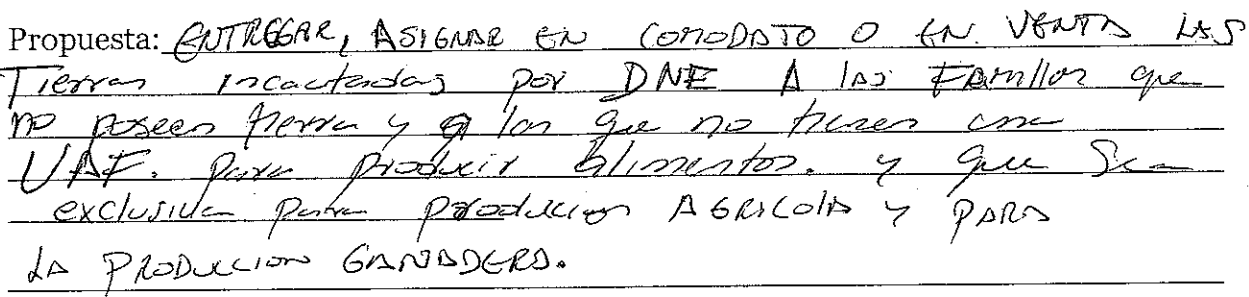 Propuesta: ENTREGAR, ASIGNAR EN COMODATO O EN VENTA LAS
Tierras incactadas por DNE A las Familias que
no poseen tierra y a los que no tienen una
UAF. para producir alimentos. y que sea
exclusiva para producción AGRICOLA y PARA
LA PRODUCCION GANADERA.